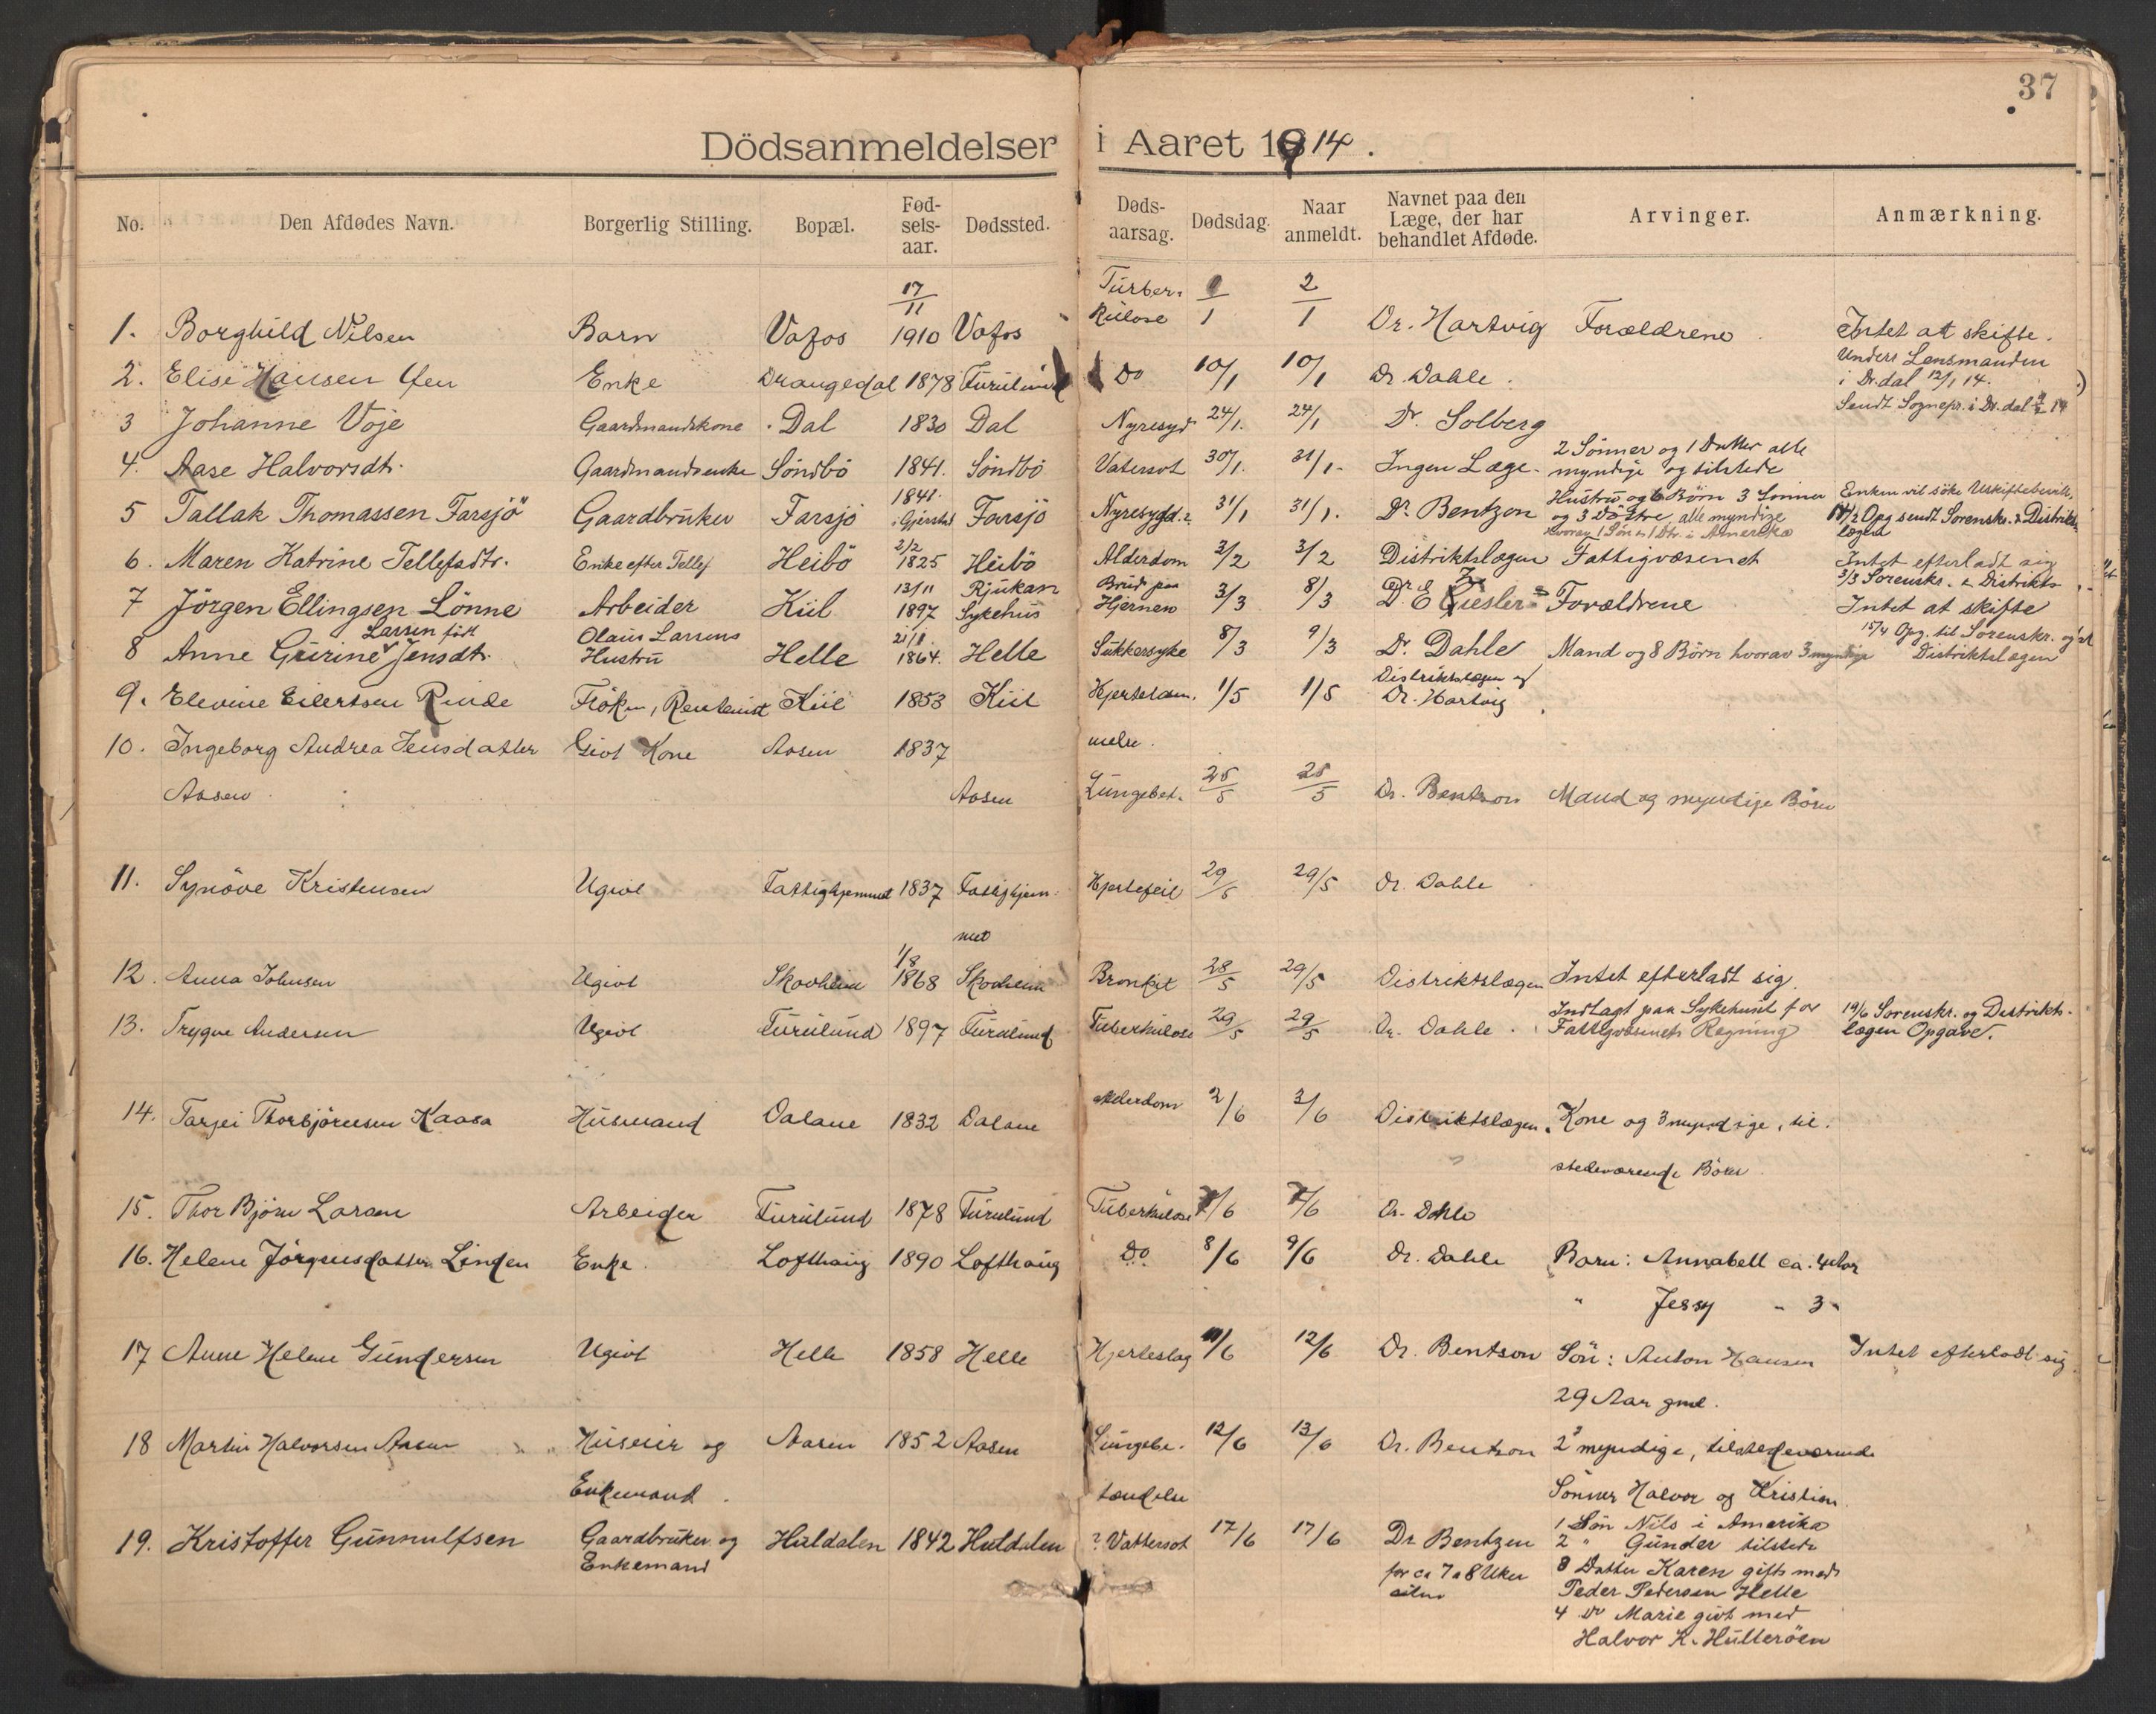 37
Dödsanmeldelser i Aaret 1914.
No. Den Afdødes Navn. Borgerlig Stilling. Bopæl. Fød-sels-aar. Dødssted. Døds-aarsag. Dødsdag. Naar anmeldt. Navnet paa den Læge, der har behandlet Afdøde. Arvinger. Anmærkning.
1. Borghild Nilsen Barn Vafos 17/11 1910 Vafos Turber-kulose 1/1 2/1 Dr. Hartvig Forældrene Intet at skifte.
2. Elise Hansen Ofen Enke Drangedal 1878 Furulund Do 10/1 10/1 Dr. Dahle. Underr. Lensmanden
i Dr.dal 12/1 14.
Sendt Sognepr. i Dr.dal 14
3 Johanne Voje Gaardmandskone Dal 1830 Dal Nyresyd 24/1. 24/1 Dr. Solberg
4. Aase Halvorsdtr. Gaardmandsenke Söndbö 1841. Söndbö Vatersot 30/1. 31/1- Ingen Læge. 2 Sönner og 1 Datter alle
myndige og tilstede
5 Tallak Thomassen Farsjö Gaardbruker Farsjö 1841. i Gjerstad Farsjö Nyresygd. 31/1 31/1. Dr. Bentzon Hustru og 6 Börn 3 Sönner
og 3 Döttre, alle myndige
hvorav 1 Sön og 1 Dtr. i Amerika
Enken vil söke Uskiftebevill.
Opg sendt Sorenskr. & Distrikts
lægen
6. Maren Katrine Tellefsdtr. Enke efter Tellef Heibö 2/2 1825 Heibö Alderdom 3/2 3/2 Distriktslægen Fattigvæsenet Intet efterladt sig
3/3 Sorenskr. & Distrikts
7 Jörgen Ellingsen Lönne Arbeider Kiil 13/11 1897 Rjukan Sykehus Brud paa Hjernen 3/3 8/3 Dr E Ziesler Forældrene Intet at skifte
8 Anne Gurine Larsen född Jensdtr. Olaus Larsens Hustru Helle 1864. Helle Sukkersyke 8/3 9/3 Dr. Dahle Mand og 8 Börn hvorav 3 myndige 15/4 Opg. til Sorenskr. og
Distriktslægen
9. Elevine Eilertsen Rinde Fröken, Rentenist Kiil 1853 Kiil Hjertelam-melse. 1/5 1/5 Distriktslægen og
Dr. Hartvig
10. Ingeborg Andrea Jensdatter Givt Kone Aasen 1837
Aasen Aasen Lungebet. 25/5 25/5 Dr. Bentzon Mand og myndige Börn
11. Synöve Kristensen Ugivt Fattighjemmet 1837 Fattighjem-met Hjertefeil 29/5 29/5 Dr. Dahle
12. Anna Johnsen Ugivt Skovheim 1/8 1868 Skovheim Bronkit 28/5 29/5 Distriktslægen Intet efterladt sig.
13. Trygve Andersen Ugivt Furulund 1897 Furulund Tuberkulose 29/5 29/5 Dr. Dahle. Indlagt paa Sykehuset for
Fattigvæsenets Regning
19/6 Sorenskr. og Distrikts-
lægen Opgave.
14. Tarjei Thorbjörnsen Kaasa Husmand Dalane 1832 Dalane Alderdom 2/6 3/6 Distriktslægen. Kone og 3 myndige, til-
stedeværende Börn
15. Thor Björn Larsen Arbeider Furulund 1878 Furulund Tuberkulose 7/6 7/6 Dr. Dahle
16. Helene Jörgensdatter Linden Enke. Lofthaug 1890 Lofthaug Do. 8/6 9/6 Dr. Dahle Barn: Annabell ca. 4 Aar
" Jessy " 3 "
17 Anne Helene Gundersen Ugivt Helle 1858 Helle Hjerteslag 11/6 12/6 Dr. Bentson Sön: Anton Hansen Intet efterladt sig
29 Aar gml.
18 Martin Halvorsen Aasen Huseier og Aasen 1852 Aasen Lungebe- 12/6 13/6 Dr. Bentzon 2 myndige, tilstedeværende
Enkemand. tændelse Sönner Halvor og Kristian
19. Kristoffer Gunnulfsen Gaardbruker og Enkemand Huldalen 1842 Huldalen ? Vattersot 17/6 17/6 Dr Bentzen
for ca 7 a 8 Uker
siden
1 Sön Nils i Amerika
2 " Gunder tilstede
3 Datter Karen gift med
Peder Pedersen Helle
4 do Marie givt med
Halvor K. Hulleröen